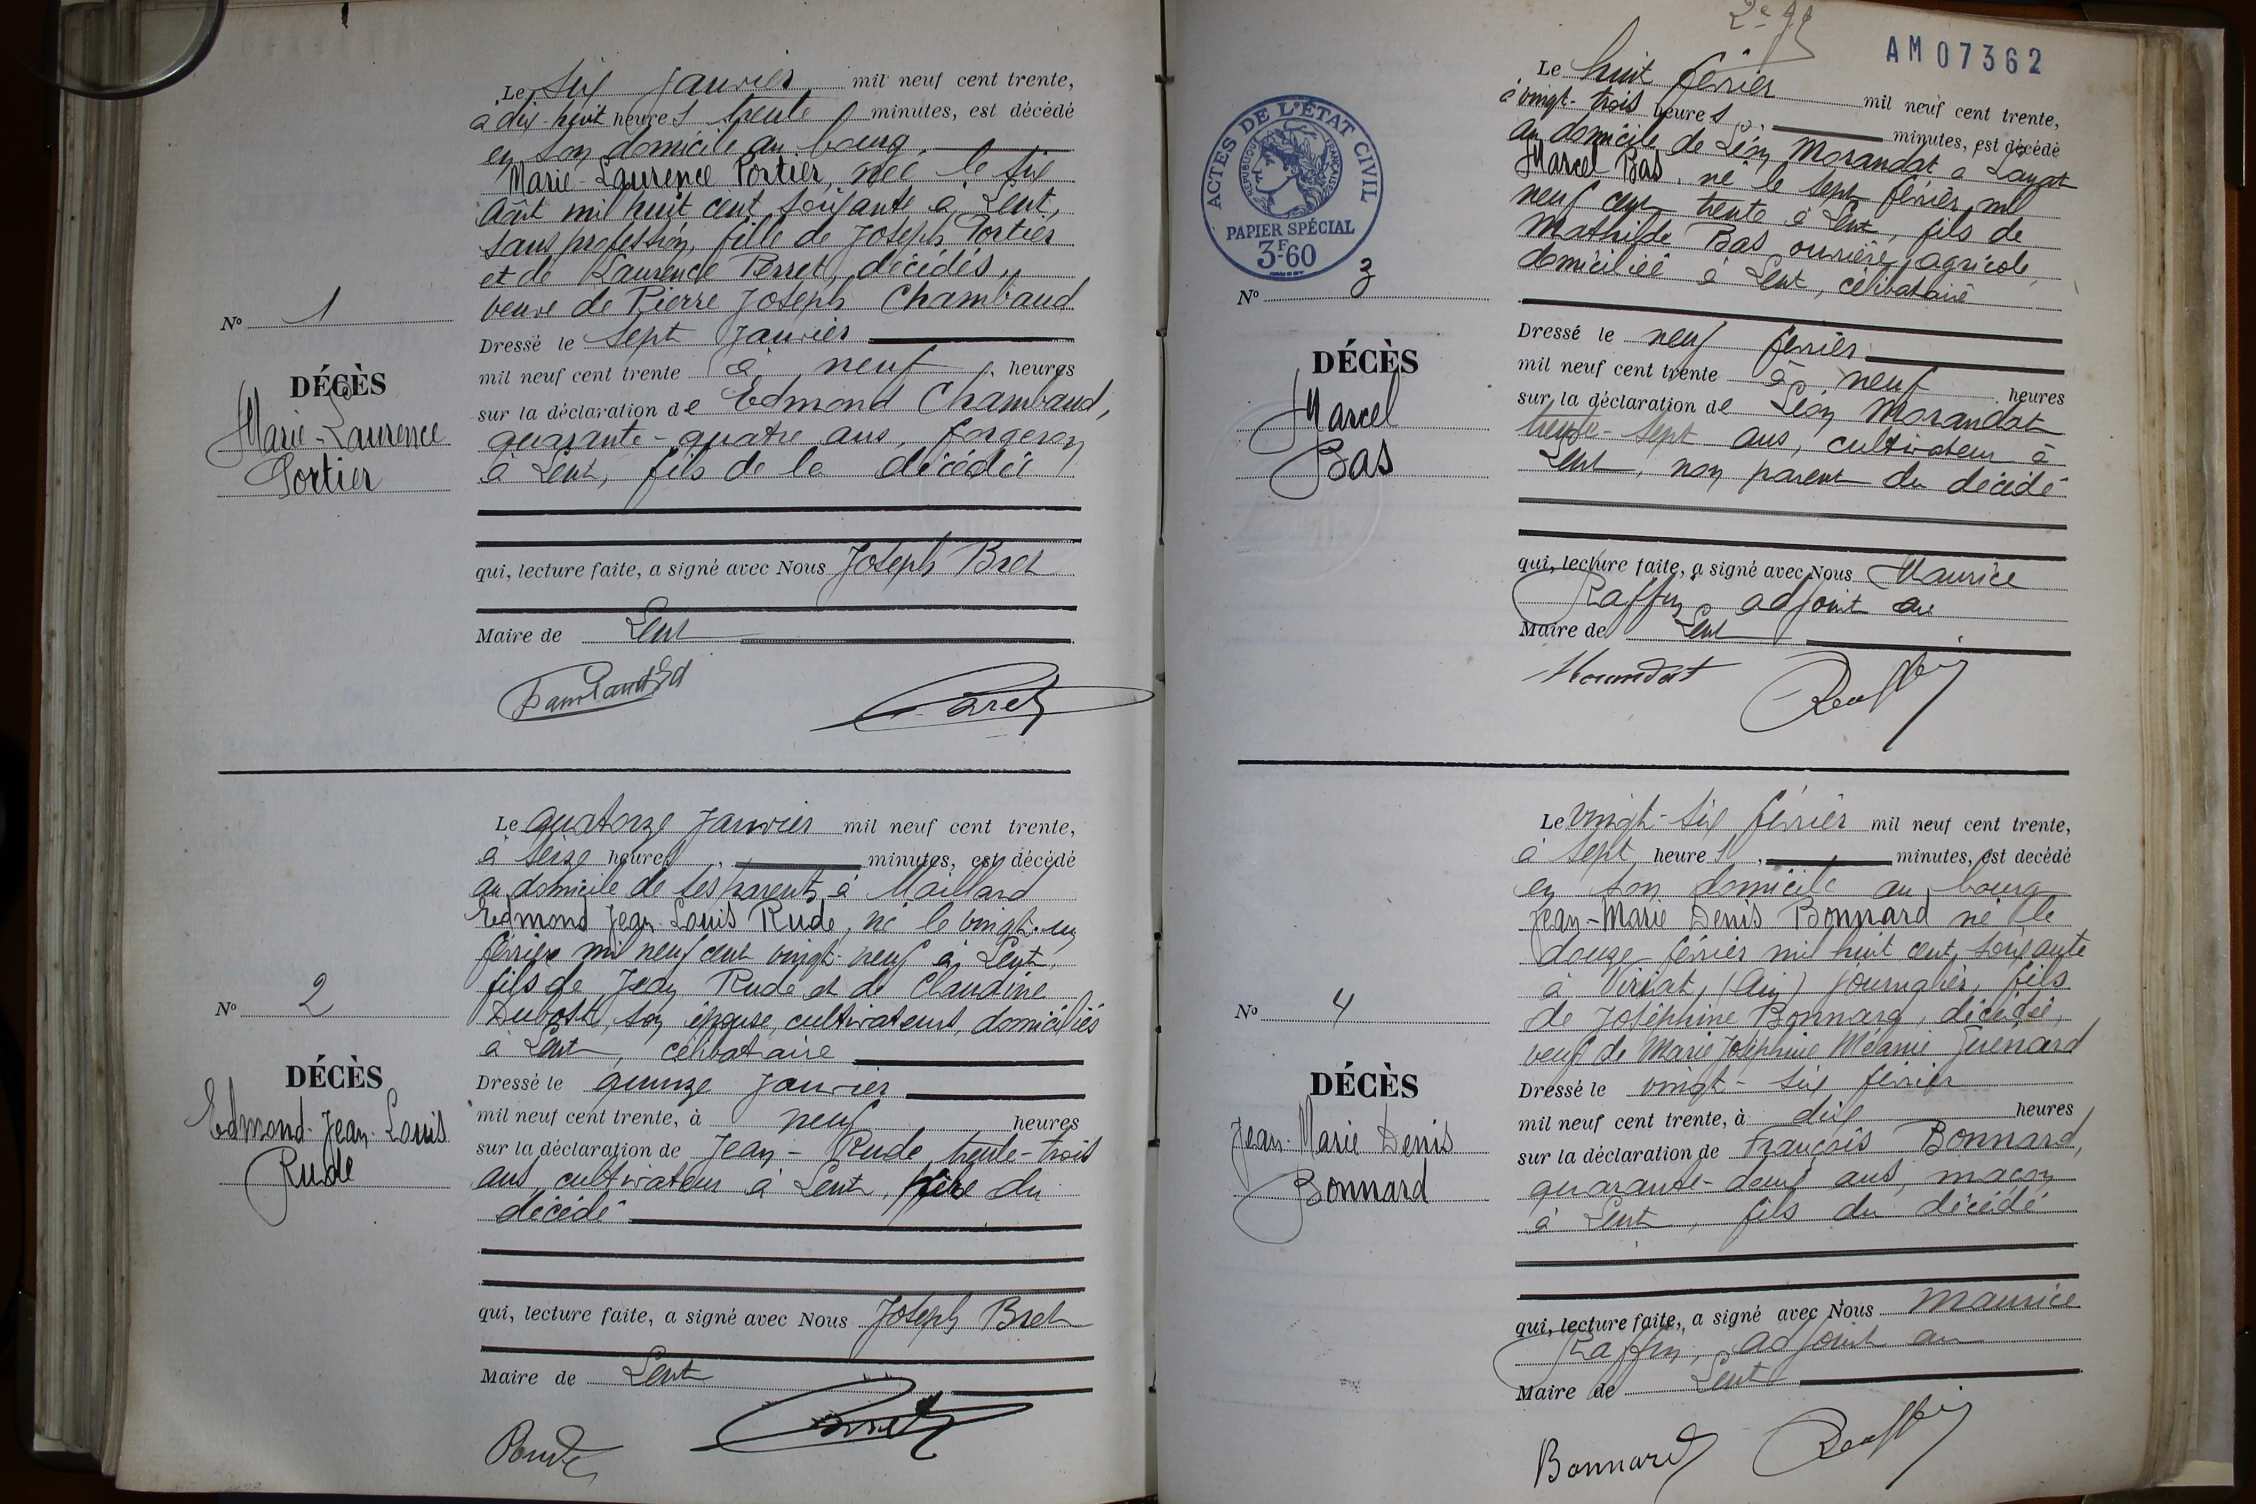 Le six Janvier mil neuf cent trente,
à dix-huit heures trente minutes, est décédé
en son domicile au bourg
Marie-Laurence Portier, née le six
Août mil huit cent soixante à Lent,
sans profession, fille de Joseph Portier
et de Laurence Perret, décédés,
veuve de Pierre Joseph Chambaud
N° 1
Dressé le sept Janvier
mil neuf cent trente à neuf heures
DÉCÈS
Marie-Laurence
Portier
sur la déclaration de Edmond Chambaud,
quarante-quatre ans, forgeron
à Lent, fils de la décédée
qui, lecture faite, a signé avec Nous Joseph Bret
Maire de Lent
Bret
Le quatorze Janvier mil neuf cent trente,
à seize heures, minutes, est décédé
au domicile de ses parents à Maillard
Edmond Jean-Louis Rude, né le vingt-un
février mil neuf cent vingt-neuf à Lent,
fils de Jean Rude et de Claudine
Dubost, son épouse, cultivateurs, domiciliés
à Lent, célibataire
N° 2
DÉCÈS
Edmond-Jean-Louis
Rude
Dressé le quinze Janvier
mil neuf cent trente, à neuf heures
sur la déclaration de Jean-Rude, trente-trois
ans, cultivateur à Lent, père du
décédé
qui, lecture faite, a signé avec Nous Joseph Bret
Maire de Lent
Rude
Bret
AM07362
ACTES DE L'ÉTAT CIVIL
RÉPUBLIQUE FRANÇAISE
PAPIER SPÉCIAL
3F60
Le huit février mil neuf cent trente,
à vingt-trois heures, minutes, est décédé
au domicile de Léon Morandat à
Marcel Bas, né le sept février mil
neuf cent trente à Lent, fils de
Mathilde Bas ouvrière agricole,
domiciliée à Lent, célibataire
N° 3
DÉCÈS
Marcel
Bas
Dressé le neuf février
mil neuf cent trente à neuf heures
sur la déclaration de Léon Morandat
trente-sept ans, cultivateur à
Lent, non parent du décédé
qui, lecture faite, a signé avec Nous Maurice
Raffin, adjoint au
Maire de Lent
Morandat
Raffin
Le vingt-six février mil neuf cent trente,
à sept heures, minutes, est decédé
en son domicile au bourg
Jean-Marie Denis Bonnard né le
douze février mil huit cent soixante
à Viriat, (Ain) journalier, fils
de Joséphine Bonnard, décédée,
veuf de Marie Joséphine Mélanie
N° 4
DÉCÈS
Jean-Marie Denis
Bonnard
Dressé le vingt-six février
mil neuf cent trente, à dix heures
sur la déclaration de François Bonnard,
quarante-deux ans, maçon
à Lent, fils du décédé
qui, lecture faite, a signé avec Nous Maurice
Raffin, adjoint au
Maire de Lent
Bonnard
Raffin